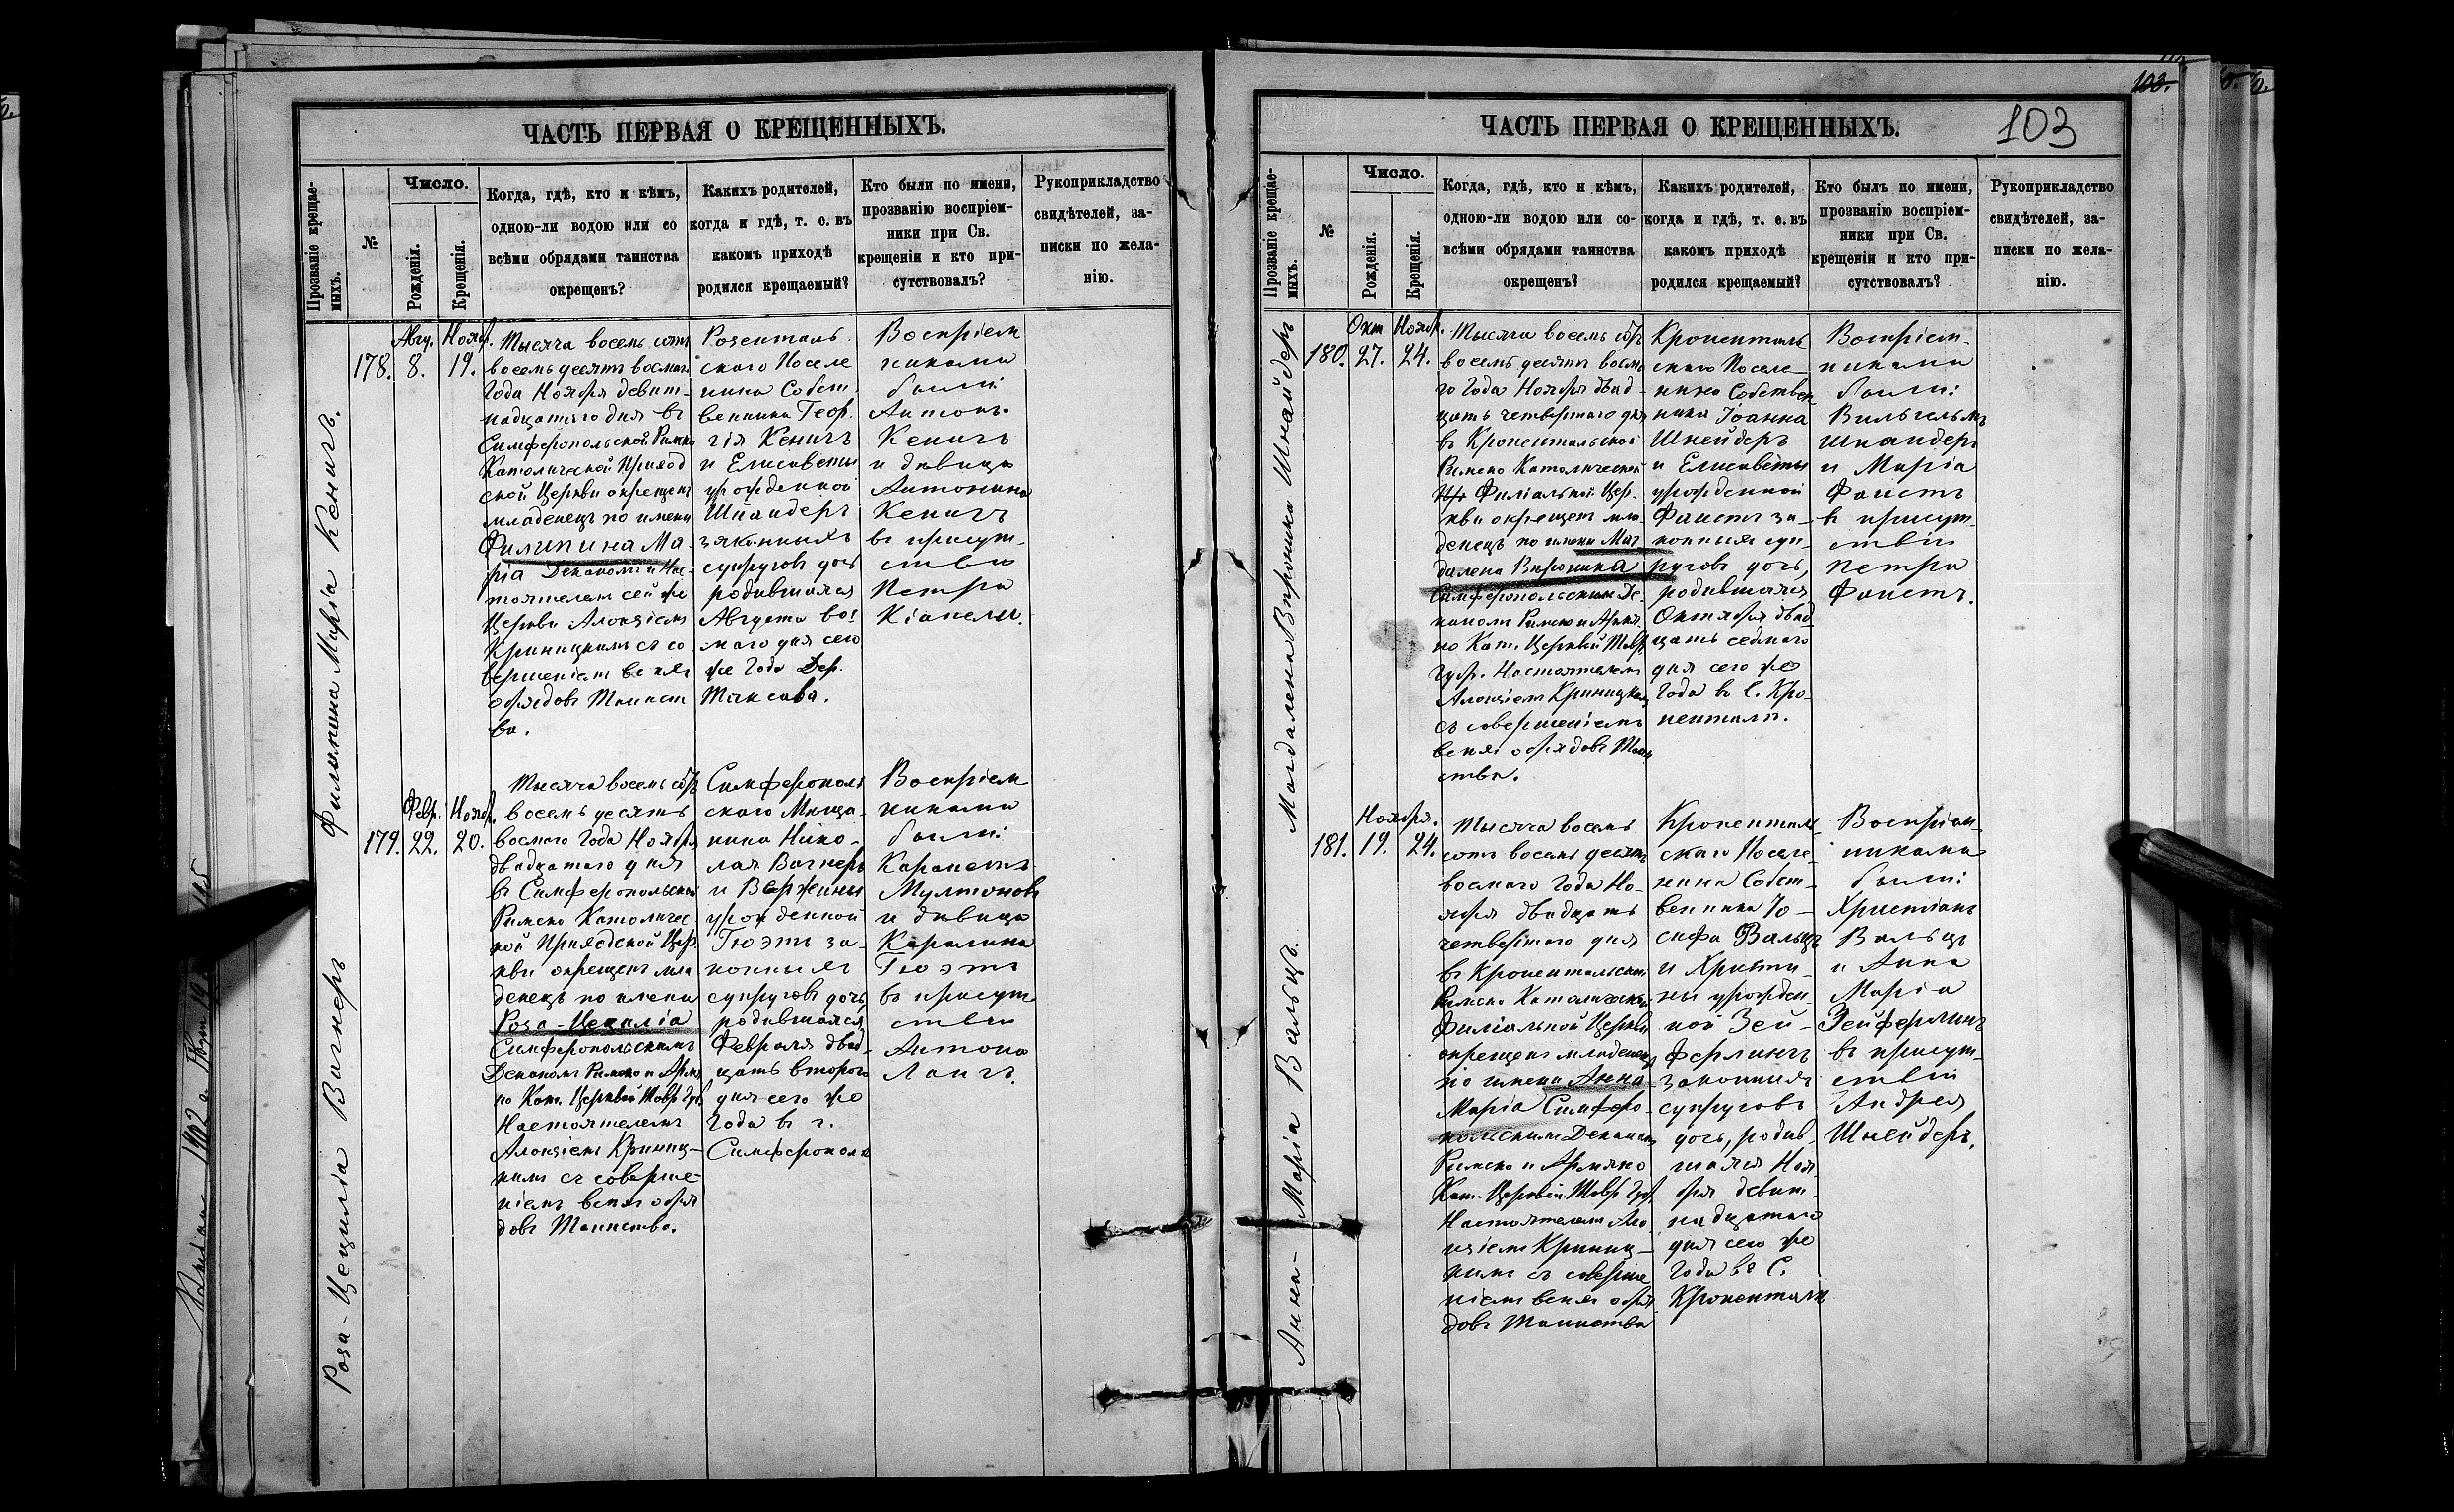 ЧАСТЬ ПЕРВАЯ О КРЕЩЕННЫХЪ.
Прозваніе крещае-
мыхъ.
№
Число.
Рожденія.
Крещенія.
Когда, гдѣ, кто и кѣмъ,
одною-ли водою или со
всѣми обрядами таинства
окрещенъ?
Какихъ родителей,
когда и гдѣ, т. е. въ
какомъ приходѣ
родился крещаемый?
Кто были по имени,
прозванію воспріем-
ники при Св.
крещеніи и кто при-
сутствовалъ?
Рукоприкладство
свидѣтелей, за-
писки по жела-
нію.
Филипина Марія Кенигъ.
178.
Авгу.
8.
Нояб.
19.
Тысяча восемь сотъ
восемьдесятъ восмаго
Года Ноября девят-
надцатаго дня въ
Симферопольской Римско
Католической Приход
ской Церкви окрещенъ
младенецъ по имени
Филипина Ма-
рія Деканомъ и Нас-
тоятелемъ сей же
Церкви Алоизіемъ
Криницкимъ съ со
вершеніемъ всѣхъ
обрядовъ Таинст
ва.
Розенталь
скаго Поселе
нина Собст-
венника Геор-
гія Кенигъ
и Елисаветы
урожденной
Шнаидеръ
законныхъ
супруговъ дочь
родившаяся
Августа вос
маго дня сего
же Года Дер.
Таксаба.
Воспріем
никами
были:
Антонъ
Кенигъ
и дѣвица
Антонина
Кенигъ
въ присут-
ствіи
Петра
Кіапели.
Роза-Цецилія Вагнеръ
179.
Февр.
22.
Нояб.
20.
Тысяча восемь сотъ
восемьдесятъ
восмаго Года Ноября
двадцатаго дня
въ Симферопольской
Римско Католичес-
кой Приходской Цер-
кви окрещенъ мла
денецъ по имени
Роза-Цецилія
Симферопольскимъ
Деканомъ Римско и Армя
но Кат. Церквей Тавр Губ.
Настоятелемъ
Алоизіемъ Криниц-
кимъ съ соверше-
ніемъ всѣхъ обря
довъ Таинства.
Симферополь
скаго Мѣща-
нина Нико-
лая Вагнеръ
и Варжины
урожденной
Гюэтъ за-
конныхъ
супруговъ дочь,
родившаяся
Февраля двад-
цать втораго
дня сего же
Года въ г.
Симферополѣ
Воспріем
никами
были:
Карапетъ
Мултоновъ
и дѣвица
Каролина
Гюэтъ
въ присут-
ствіи
Антона
Лангъ.
ЧАСТЬ ПЕРВАЯ О КРЕЩЕННЫХЪ.
103.
103
Прозваніе крещае-
мыхъ.
№
Число.
Рожденія.
Крещенія.
Когда, гдѣ, кто и кѣмъ,
одною-ли водою или со-
всѣми обрядами таинства
окрещенъ?
Какихъ родителей,
когда и гдѣ, т. е. въ
какомъ приходѣ
родился крещаемый?
Кто былъ по имени,
прозванію воспріем-
ники при Св.
крещеніи и кто при-
сутствовалъ?
Рукоприкладство
свидѣтелей, за-
писки по жела-
нію.
Магдалена Вироника Шнайдеръ
180.
Окт
27.
Нояб.
24.
Тысяча восемь сотъ
восемьдесятъ восма
го Года Ноября двад-
цать четвертаго дня
въ Кронентальской
Римско Католической
Филіальной Цер-
кви окрещенъ мла-
денецъ по имени Маг
далена Вироника
Симферопольскимъ Де-
каномъ Римско и Армя-
но Кат. Церквей Тавр.
Губ. Настоятелемъ
Алоизіемъ Криницкимъ
съ совершеніемъ
всѣхъ обрядовъ Таин
ства.
Кронентальс
скаго Поселе
нина Собствен
ника Іоанна
Шнейдеръ
и Елисаветы
урожденной
Фаистъ за-
конныхъ суп-
руговъ дочь,
родившаяся
Октября двад
цать седмаго
дня сего же
Года въ С. Кро-
ненталѣ.
Воспріем-
никами
были:
Вильгельмъ
Шнаидеръ
и Марія
Фаистъ
въ присут-
ствіи
Петра
Фаистъ.
Анна-Марія Вальцъ.
181.
Ноября.
19.
24.
Тысяча восемь
сотъ восемьдесятъ
восмаго Года Но-
ября двадцать
четвертаго дня
въ Кронентальской
Римско Католической
Филіальной Церкви
окрещенъ младенецъ
по имени Анна
Марія Симферо-
польскимъ Деканомъ
Римско и Армяно
Кат. Церквей Тавр Губ.
Настоятелемъ Ало
изіемъ Криниц-
кимъ съ соверше
ніемъ всѣхъ обря
довъ Таинства
Кроненталь-
скаго Поселе-
нина Собст-
венника Іо-
сифа Вальцъ
и Христи-
ны урожден-
ной Зей-
ферлингъ
законныхъ
супруговъ
дочь, родив-
шаяся Ноя
бря девят-
надцатаго
дня сего же
Года въ С.
Кроненталѣ
Воспріем-
никами
были:
Христіанъ
Вальцъ
и Анна
Марія
Зейферлингъ
въ присут-
ствіи
Андрея
Шнейдеръ.